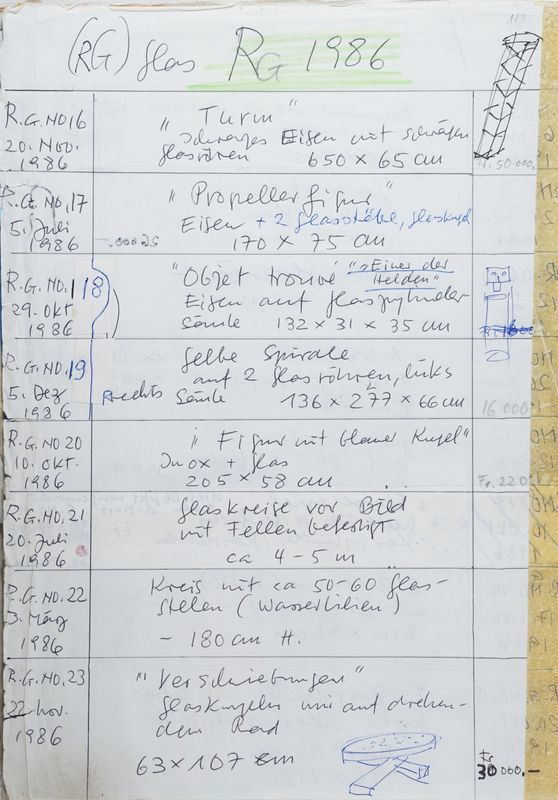 113
(RG) glas RG 1986
R.G. NO 16
20. Nov.
1986
„ Turm "
schwarzes Eisen mit schrägen
glasröhren 650 x 65 cm
Fr. 50 000.
R.G. NO, 17
5. Juli
1986
„ Propellerfigur "
Eisen + 2 glasstäbe,
170 x 75 cm
R.G. NO. 18
29. Okt
1986
"Objet trouvé "
"Einer der
Helden"
Eisen auf glaszylinder
Säule 132 x 31 x 35 cm
R.G. NO. 19
5. Dez
1986
gelbe Spirale
auf 2 glasröhren, links
rechts Säule 136 x 277 x 66 cm
16 000
R.G. NO 20
10. Okt.
1986
„ Figur mit blauer Kugel "
Inox + glas
205 x 58 cm
R.G. NO. 21
20. Juli
1986
glaskreise vor Bild
mit Fellen befestigt
ca 4-5 m
R.G. NO. 22
3. März
1986
Kreis mit ca 50-60 glas-
stelen (Wasserlilien)
- 180 cm H.
R.G. NO. 23
22 nov.
1986
„ Verschiebungen "
auf drehen-
dem Rad
63 x 107 cm
Fr
30 000.-